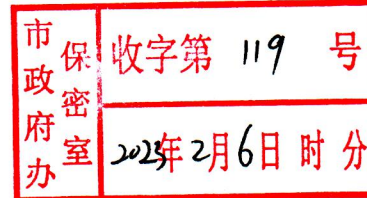 市政府办
保密室
收字第 119 号
2023年2月6日 时 分